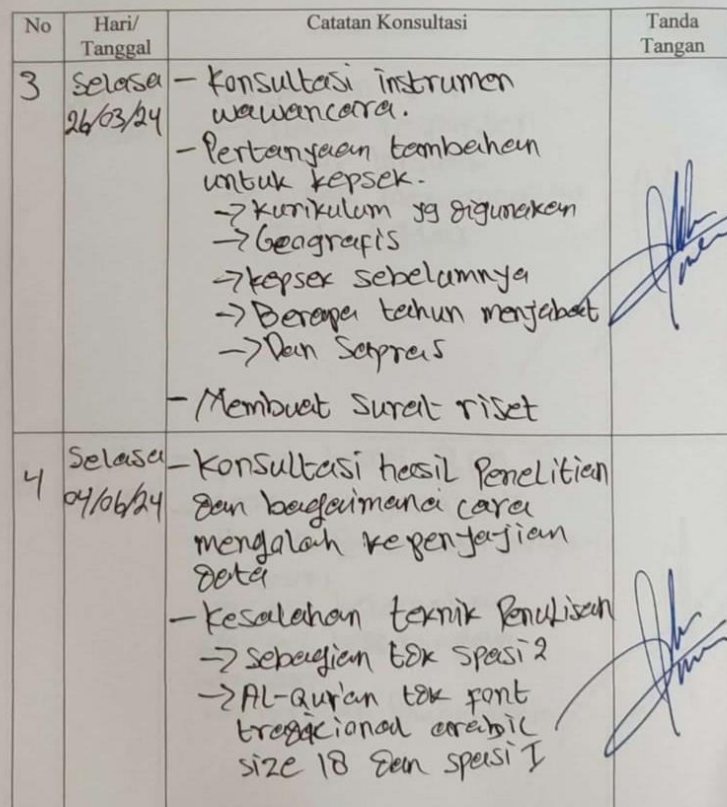 No Hari/ Tanggal Catatan Konsultasi Tanda Tangan
3 Selasa 26/03/24
- Konsultasi instrumen
wawancara.
- Pertanyaan tambahan
untuk kepsek.
-> Kurikulum yg digunakan
-> Geografis
-> kepsek sebelumnya
-> Berapa tahun menjabat
-> Dan Sarpras
- Membuat Surat riset
4 Selasa 04/06/24
- Konsultasi hasil Penelitian
dan bagaimana cara
mengalah kepenyajian
data
- Kesalahan teknik Penulisan
-> Sebagian tdk spasi 2
-> AL-Qur'an tdk font
tradicional arabic
size 18 dan spasi 1